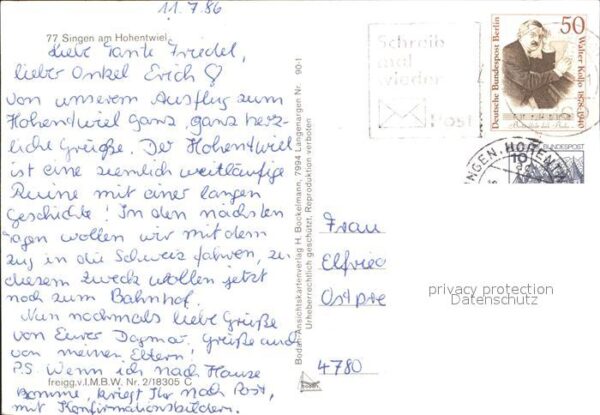 11.7.86
77 Singen am Hohentwiel
Liebe Tante Friedel,
lieber Onkel Erich
von unserem Ausflug zum
Hohentwiel ganz ganz herz-
liche Grüße. Der Hohentwiel
ist eine ziemlich weitläufige
Ruine mit einer langen
Geschichte! In den nächsten
Tagen wollen wir mit dem
Zug in die Schweiz fahren, zu
diesem Zweck wollen jetzt
noch zum Bahnhof.
Nun nochmals liebe Grüße
von Eurer Dagmar. Grüße auch
von meinen Eltern!
P.S. Wenn ich nach Hause
komme, kriegt Ihr noch Post,
mit Konfirmationsbildern.
freigg.v.I.M.B.W. Nr. 2/18305 C
Bodan-Ansichtskartenverlag H. Bockelmann, 7994 Langenargen Nr. 90-1
Urheberrechtlich geschützt. Reproduktion verboten
Schreib
mal
wieder
Post
50
Deutsche Bundespost Berlin
Walter Kollo 1878-1940
SINGEN, HOHENTW
BUNDESPOST
Frau
Elfried
Ostpre
4780
privacy protection
Datenschutz